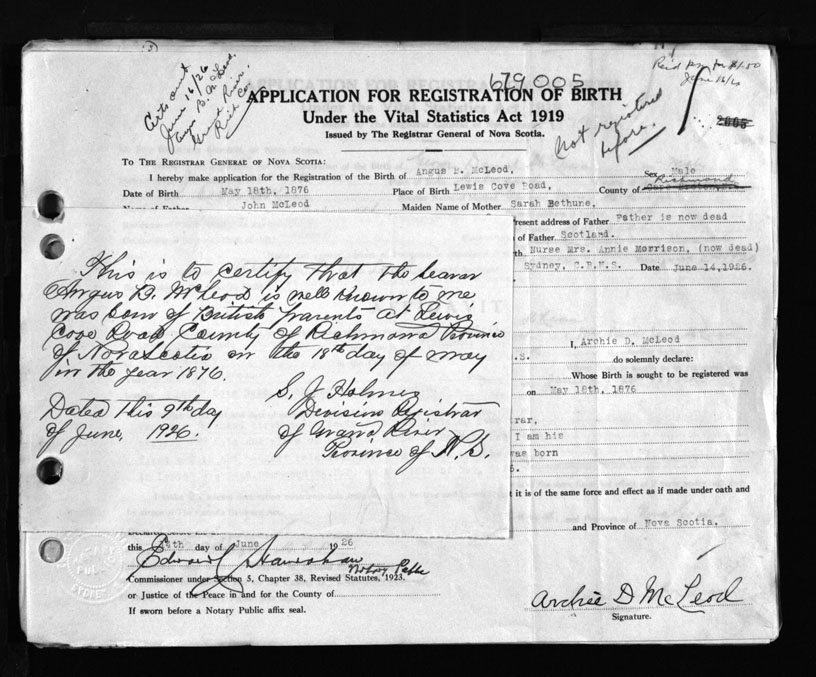 Certs sent
June 16/26
Angus B. McLeod.
Grand River.
Rich Co.
679005
Paid Dep for $1.50
June 16/26
APPLICATION FOR REGISTRATION OF BIRTH
Under the Vital Statistics Act 1919
Issued by The Registrar General of Nova Scotia.
Not registered
before.
2665
TO THE REGISTRAR GENERAL OF NOVA SCOTIA:
I hereby make application for the Registration of the Birth of Angus B. McLeod, Sex Male
Date of Birth May 18th, 1876 Place of Birth Lewis Cove Road, County of Richmond
Name of Father John McLeod Maiden Name of Mother Sarah Bethune,
Present address of Father Father is now dead
of Father Scotland.
Nurse Mrs. Annie Morrison, (now dead)
Sydney, C.B.N.S. Date June 14,1926.
This is to certify that the bearer
Angus B. McLeod is well known to me
was born of British parents at Lewis
Cove Road County of Richmond Province
of Nova Scotia on the 18th day of may
in the year 1876.
S. J. Holmes
Dated this 9th day Division Registrar
of June, 1926. of Grand River
Province of N.S.
I, Archie D. McLeod
.S. do solemnly declare:
Whose Birth is sought to be registered was
on May 18th, 1876
rar,
I am his
was born
6.
it is of the same force and effect as if made under oath and
and Province of Nova Scotia.
this 14th day of June 1926
Notary Public
Commissioner under Section 5, Chapter 38, Revised Statutes, 1923.
or Justice of the Peace in and for the County of
If sworn before a Notary Public affix seal.
Archie D McLeod
Signature.